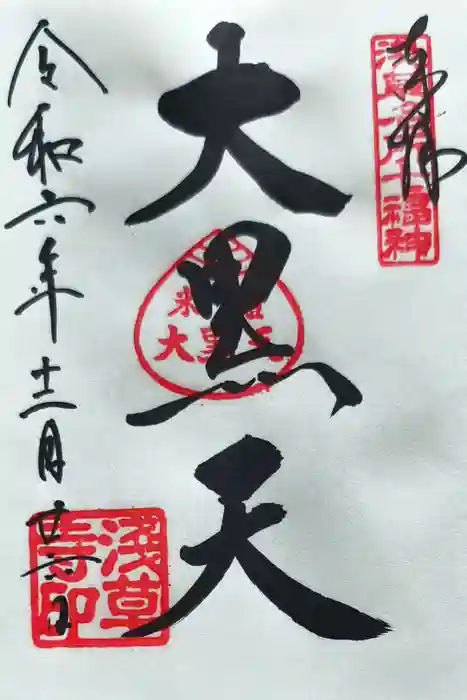 奉拝
浅草名所七福神
大黒天
米びつ
大黒天
令和六年十二月廿二日
浅草
寺印